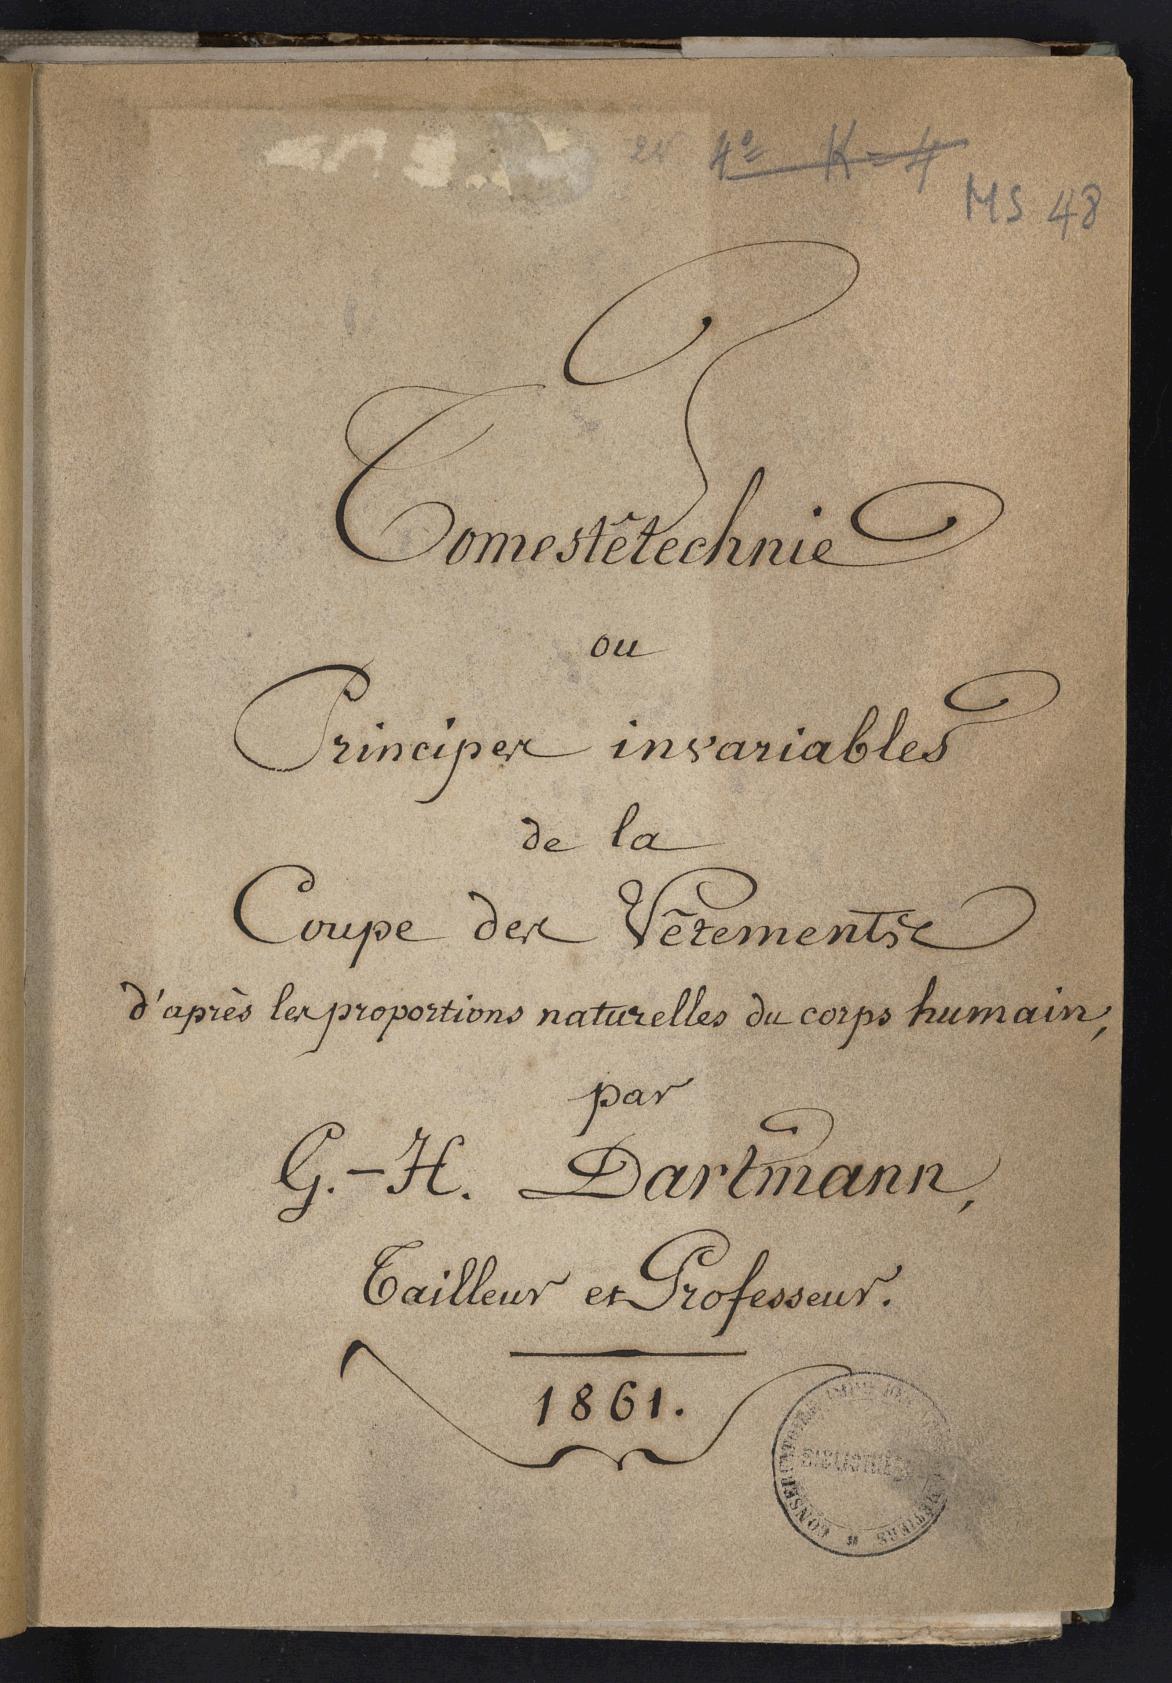 4º K = 4
MS 48
Tomestêtechnie
ou
Principes invariables
de la
Coupe des Vêtements
d'après les proportions naturelles du corps humain,
par
G.-H. Dartmann,
Tailleur et Professeur.
1861.